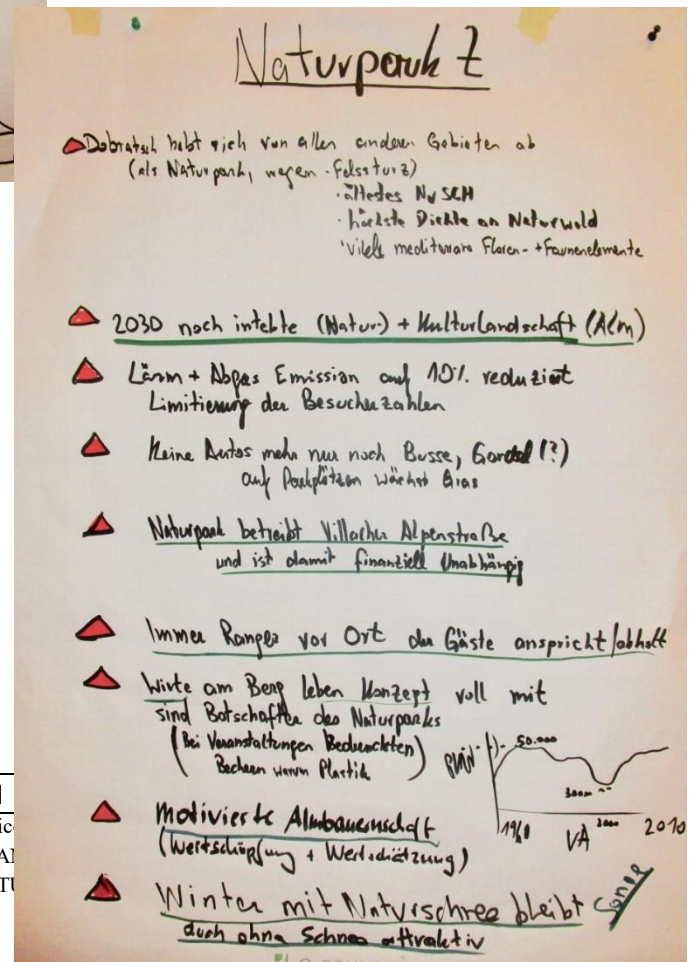 Naturpark Z
Dobratsch hebt sich von allen anderen Gebieten ab
(als Naturpark, wegen - Felssturz)
· ältestes NSCH
· höchste Dichte an Naturwald
· Viele mediterrane Floren- + Faunenelemente
2030 noch intakte (Natur-) + Kulturlandschaft (Alm)
Lärm + Abgas Emission auf 10% reduziert
Limitierung der Besucherzahlen
Keine Autos mehr nur noch Busse, Gondel (?)
auf Parkplätzen wächst Gras
Naturpark betreibt Villacher Alpenstraße
und ist damit finanziell Unabhängig
Immer Ranger vor Ort der Gäste anspricht/abholt
Wirte am Berg leben Konzept voll mit
sind Botschafter des Naturparks
(Bei Veranstaltungen Bedruckten)
Bechern warum Plastik
50.000
1960 VA 2010
motivierte Almbauernschaft
(Wertschöpfung + Wertschätzung)
Winter mit Naturschnee bleibt
auch ohne Schnee attraktiv